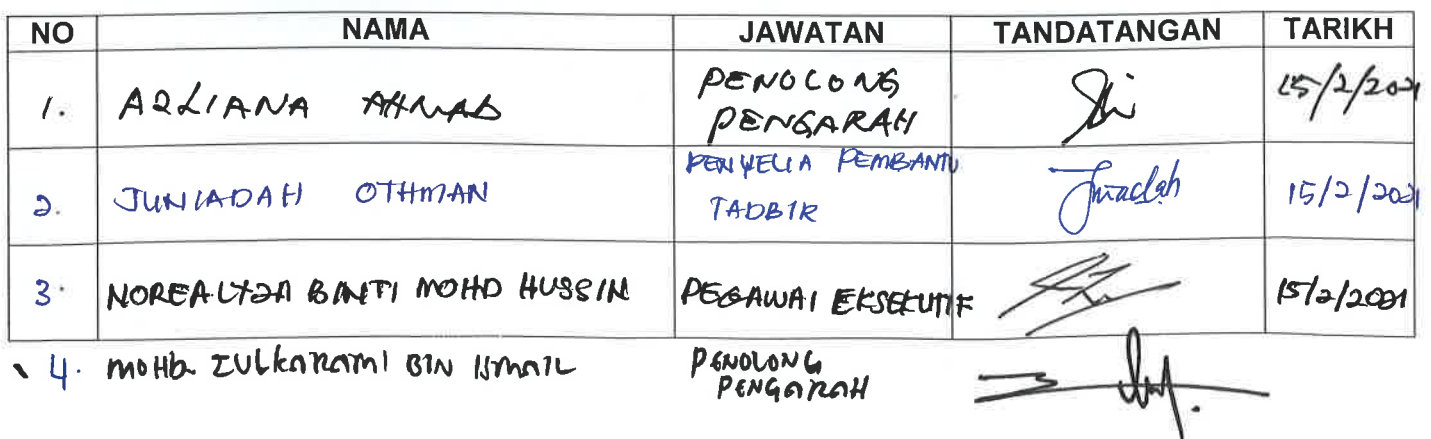 NO NAMA JAWATAN TANDATANGAN TARIKH
1. AZLIANA AHMAD PENOLONG PENGARAH 15/2/2021
2. JUNIADAH OTHMAN PENYELIA PEMBANTU TADBIR 15/2/2021
3. BINTI MOHD HUSSIN PEGAWAI EKSEKUTIF 15/2/2021
4. MOHD ZULKARAMI BIN ISMAIL PENOLONG PENGARAH